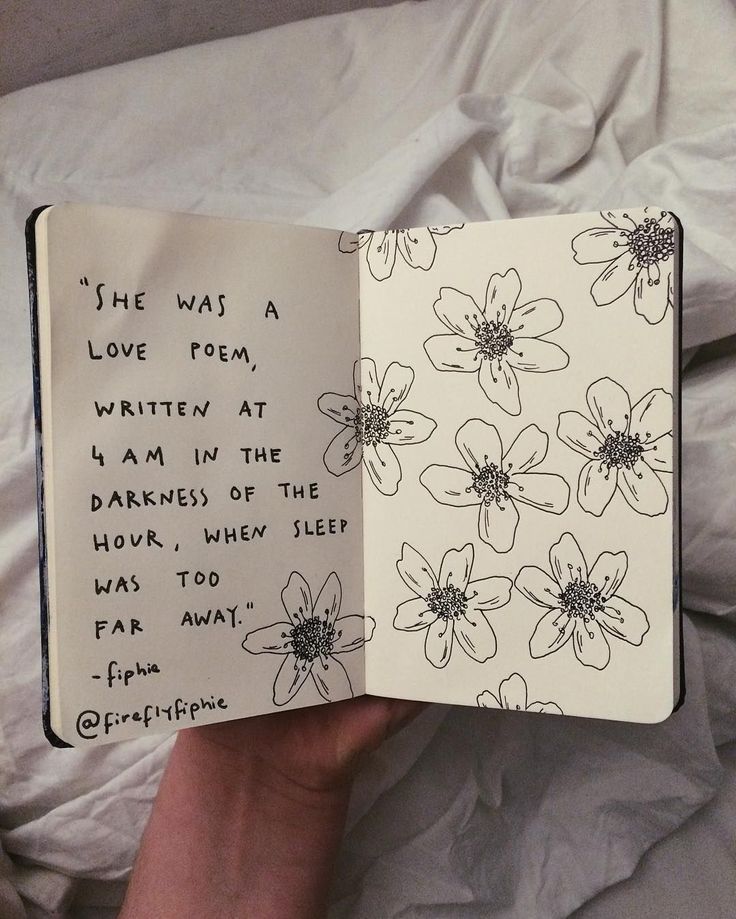 "SHE WAS A
LOVE POEM,
WRITTEN AT
4 AM IN THE
DARKNESS OF THE
HOUR, WHEN SLEEP
WAS TOO
FAR AWAY."
-fiphie
@fireflyfiphie